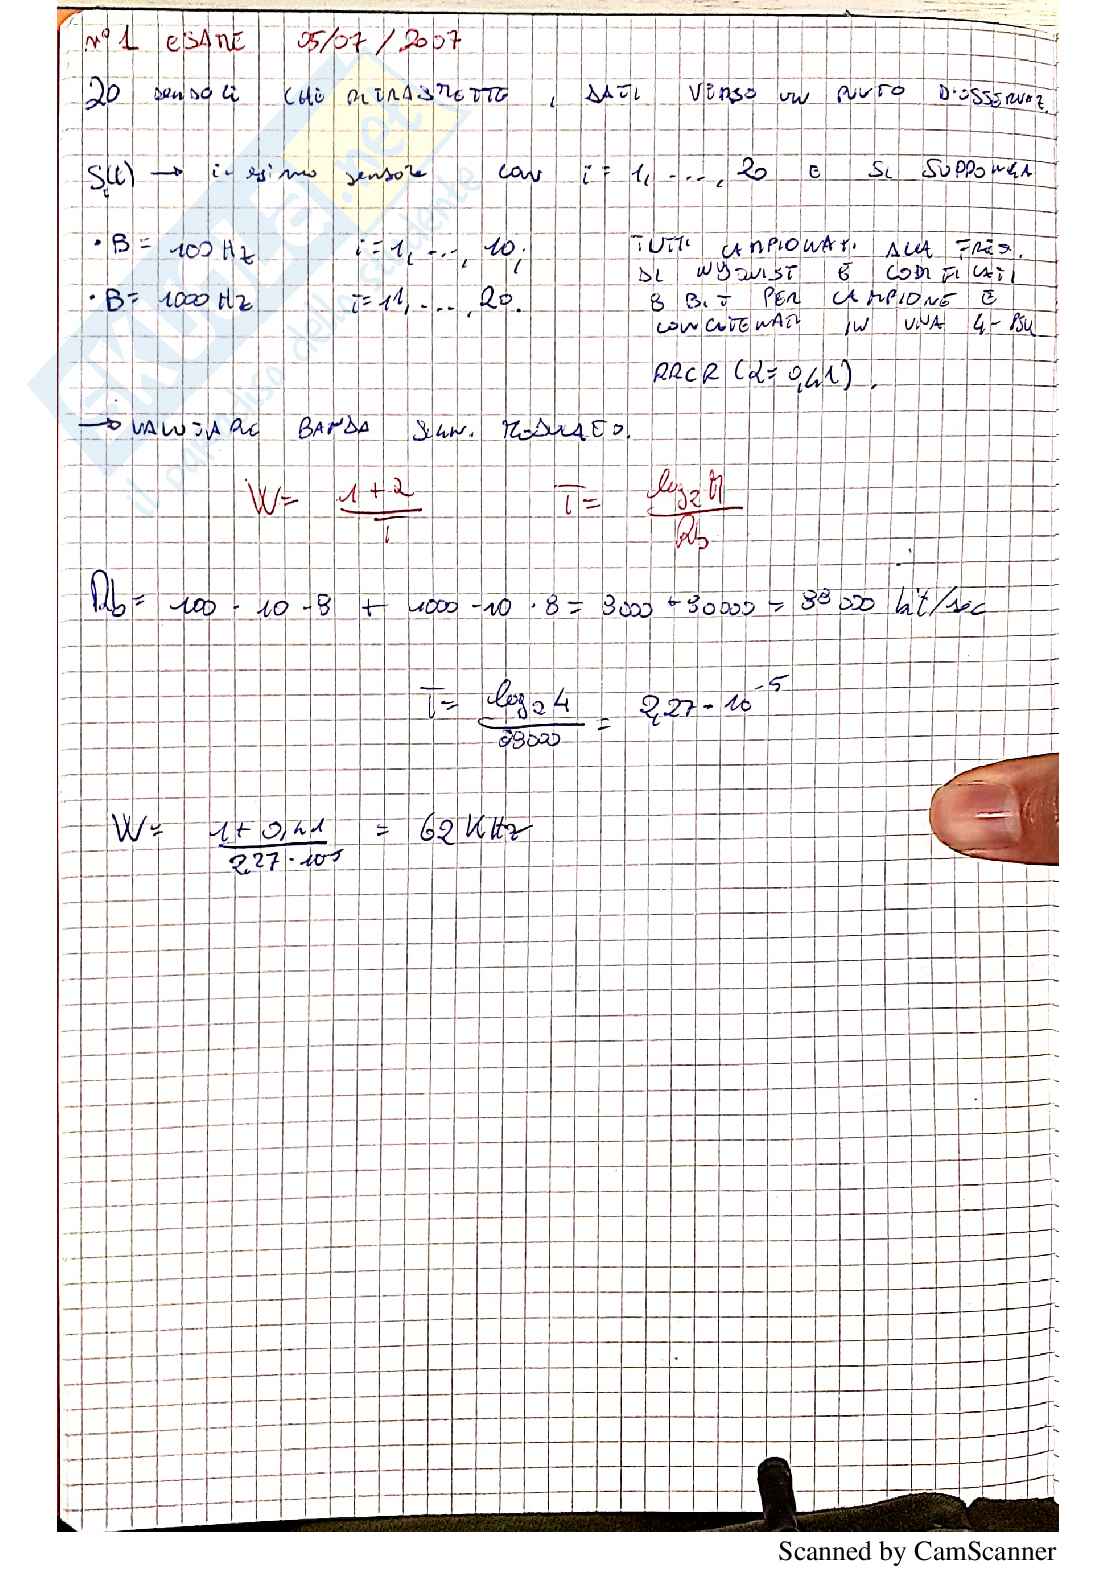 n° 1 ESAME 05/07/2007
20 sensori CHE TRASMETTO, DATI VERSO UN PUNTO D'OSSERVAZ.
Si(t) → i-esimo sensore con i = 1, ...., 20 E SI SUPPONGA
• B = 100 Hz i = 1, ..., 10;
• B = 1000 Hz i = 11, ..., 20.
TUTTI CAMPIONATI ALLA FREQ.
DI NYQUIST E CODIFICATI
8 BIT PER CAMPIONE E
CONCATENATI IN UNA 4-PSK
RRCR (α = 0,41).
→ VALUTARE BANDA SEGN. MODULATO.
W = 1 + α / T T = log2 M / Rb
Rb = 100 · 10 · 8 + 1000 · 10 · 8 = 8000 + 80000 = 88000 bit/sec
T = log2 4 / 88000 = 2,27 · 10^-5
W = 1 + 0,41 / 2,27 · 10^-5 = 62 KHz
SKUOLA.net
il paradiso dello studente
Scanned by CamScanner